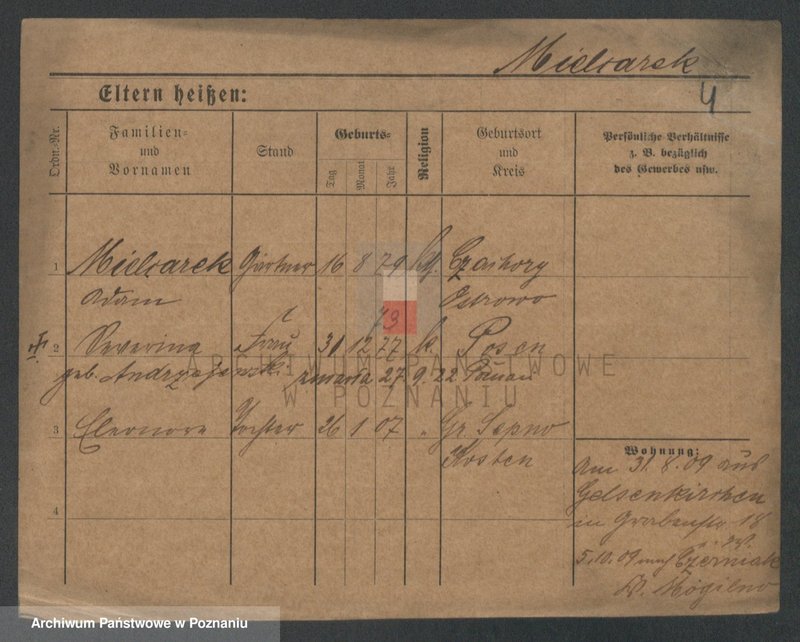 Mielcarek
4
Eltern heißen:
Ordn.-Nr.
Familien-
und
Vornamen
Stand
Geburts-
Tag
Monat
Jahr
Religion
Geburtsort
und
Kreis
Persönliche Verhältnisse
z. B. bezüglich
des Gewerbes usw.
1 Mielcarek Gärtner 16 8 79 kth.
Adam Ostrowo
73
2 Severina Frau 31 12 77 k. Posen
geb. Andrzejewski zmarła 27. 9. 22 Poznań
3 Eleonore Tochter 26 1 07 " Gr. Sepno
Kosten
4
Wohnung:
Am 31. 8. 09 aus
Gelsenkirchen
in Grabenstr 18
5. 10. 09 nach Czerniak
Kr. Mogilno
ARCHIWUM PAŃSTWOWE
W POZNANIU
Archiwum Państwowe w Poznaniu